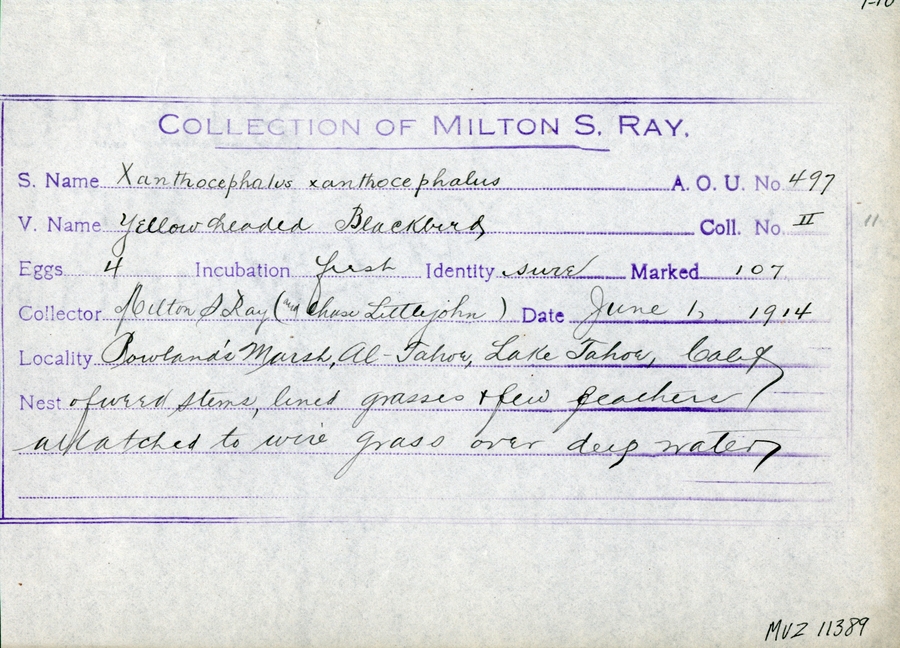 1-10
COLLECTION OF MILTON S. RAY.
S. Name Xanthocephalus xanthocephalus A. O. U. No. 497
V. Name Yellow headed Blackbird Coll. No. II 11
Eggs 4 Incubation fresh Identity sure Marked 107
Collector Milton S Ray (and Chase Littlejohn) Date June 1, 1914
Locality Rowland's Marsh, Al-Tahoe, Lake Tahoe, Calif
Nest of weed stems, lined grasses + few feathers
attatched to wire grass over deep water,
MVZ 11389